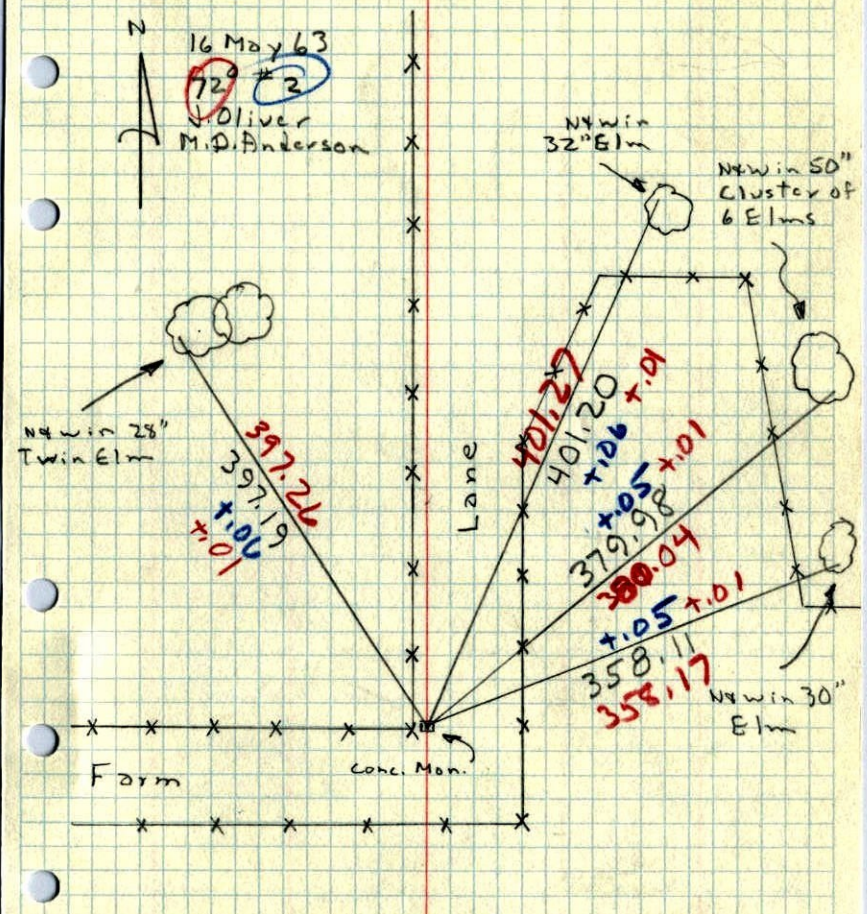 N
16 May 63
72° #2
J. Oliver
M.D. Anderson
N&W in
32" Elm
N&W in 50"
Cluster of
6 Elms
N&W in 28"
Twin Elm
397.26
397.19
+.06
+.01
Lane
401.27
401.20
+.06 +.01
+.05 +.01
379.98
380.04
+.05 +.01
358.11
358.17
N&W in 30"
Elm
Conc. Mon.
Farm